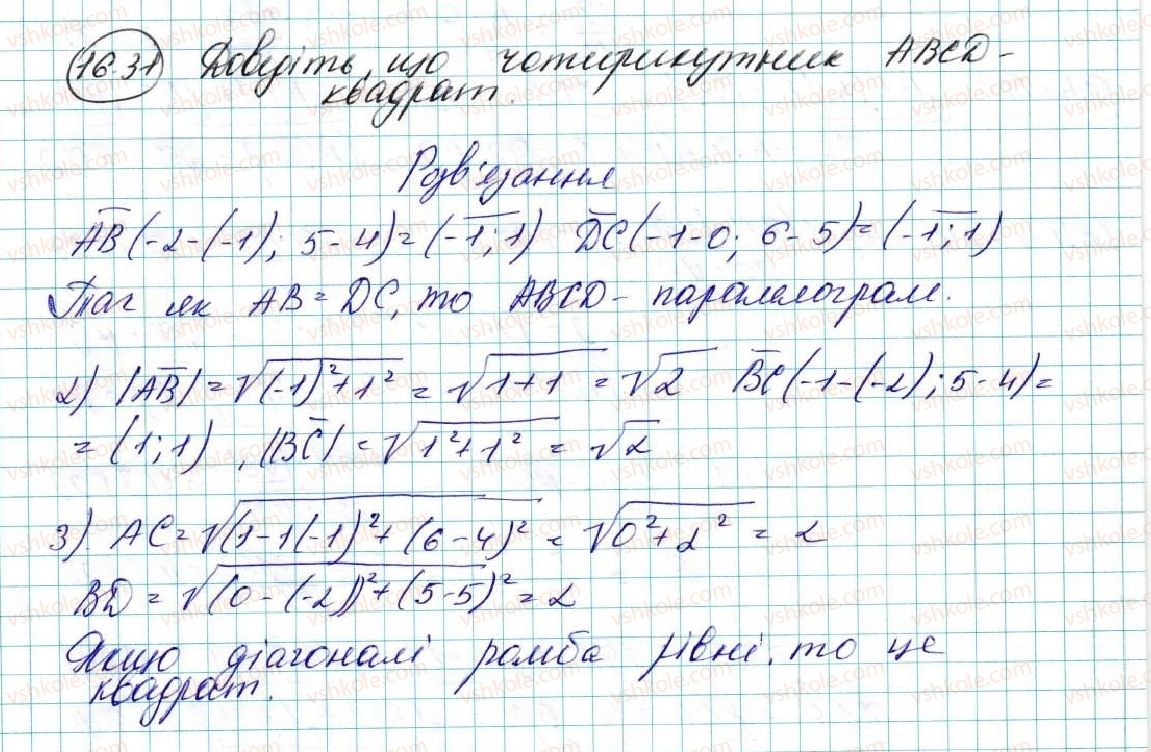 16.31 Доведіть, що чотирикутник ABCD -
квадрат.
Розв'язання
AB (-2-(-1); 5-4) = (-1; 1) DC (-1-0; 6-5) = (-1; 1)
Таг як AB = DC, то ABCD - паралелограм.
2) |AB| = √(-1)²+1² = √1+1 = √2 BC (-1-(-2); 5-4) =
= (1; 1), |BC| = √1²+1² = √2
3) AC = √(1-1(-1)²+(6-4)² = √0²+2² = 2
BD = √(0-(-2))²+(5-5)² = 2
Якщо діагоналі ромба рівні, то це
квадрат.